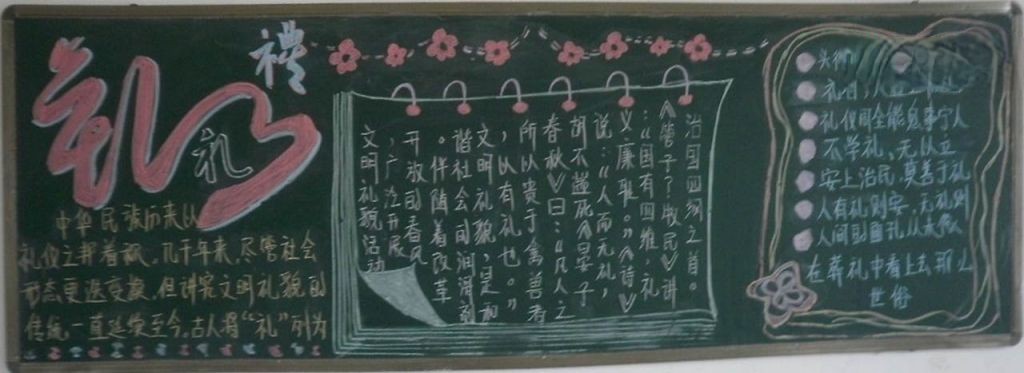 礼
禮
礼
中华民族历来以
礼仪之邦着称。几千年来,尽管社会
形态更迭变换,但讲究文明礼貌的
传统一直延续至今,古人将“礼”列为
治国四纲之首。
《管子?牧民》讲
:“国有四维,礼
义廉耻。”《诗》
说:“人而无礼,
胡不遄死《晏子
春秋》曰:“凡人之
所以贵于禽兽者
,以有礼也。”
文明礼貌,是和
谐社会的润滑剂
。伴随着改革
开放的春风
,广泛开展
文明礼貌活动
礼仪周全能息事宁人
不学礼、无以立
安上治民,莫善于礼
人有礼则安,无礼则
在葬礼中看上去
世俗